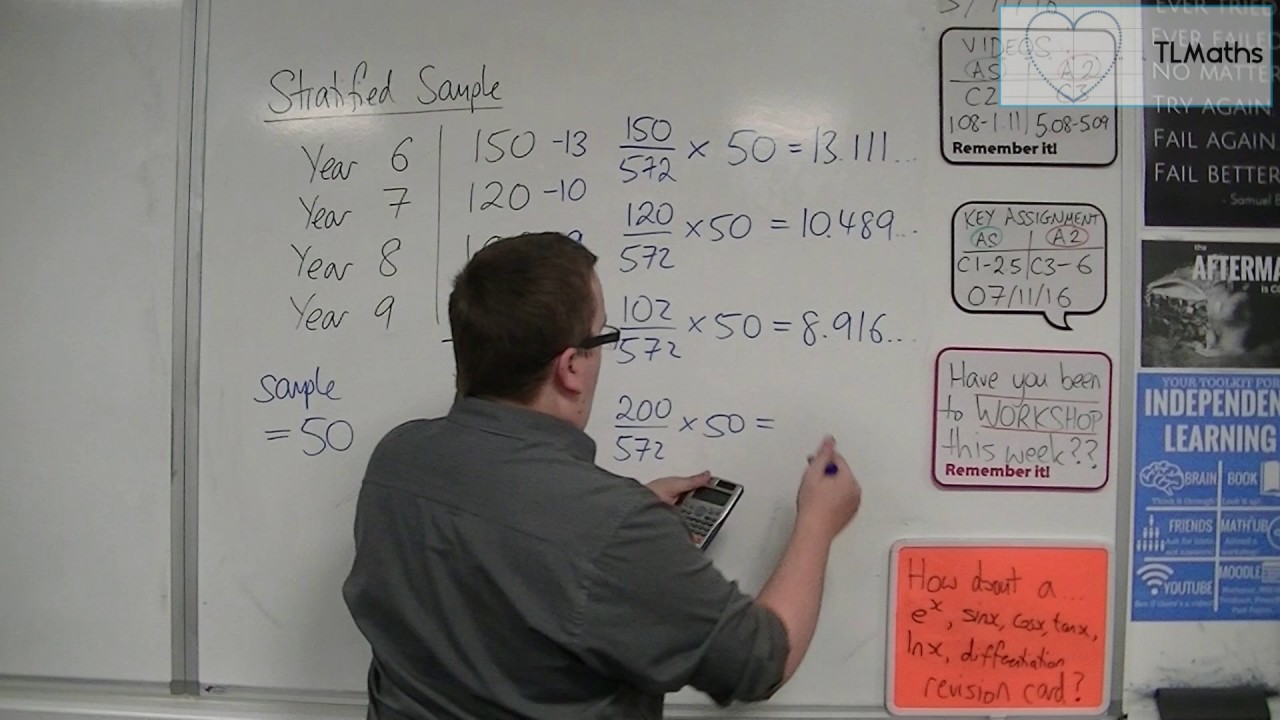 Stratified Sample
Year 6 150 -13
Year 7 120 -10
Year 8
Year 9
sample
= 50
150/572 × 50 = 13.111...
120/572 × 50 = 10.489...
102/572 × 50 = 8.916...
200/572 × 50 =
VIDEOS
AS A2
C2 C3
1.08-1.11 5.08-5.09
Remember it!
KEY ASSIGNMENT
AS A2
C1-25 C3-6
07/11/16
Have you been
to WORKSHOP
this week??
Remember it!
How about a...
e^x, sinx, cosx, tanx,
lnx, differentiation
revision card?
TLMaths
EVER TRIED
EVER FAILED
NO MATTER
TRY AGAIN
FAIL AGAIN
FAIL BETTER
- Samuel
the
AFTERMA
is co
YOUR TOOLKIT FOR
INDEPENDEN
LEARNING
BRAIN
BOOK
FRIENDS
MATH UB
YOUTUBE
MOODLE